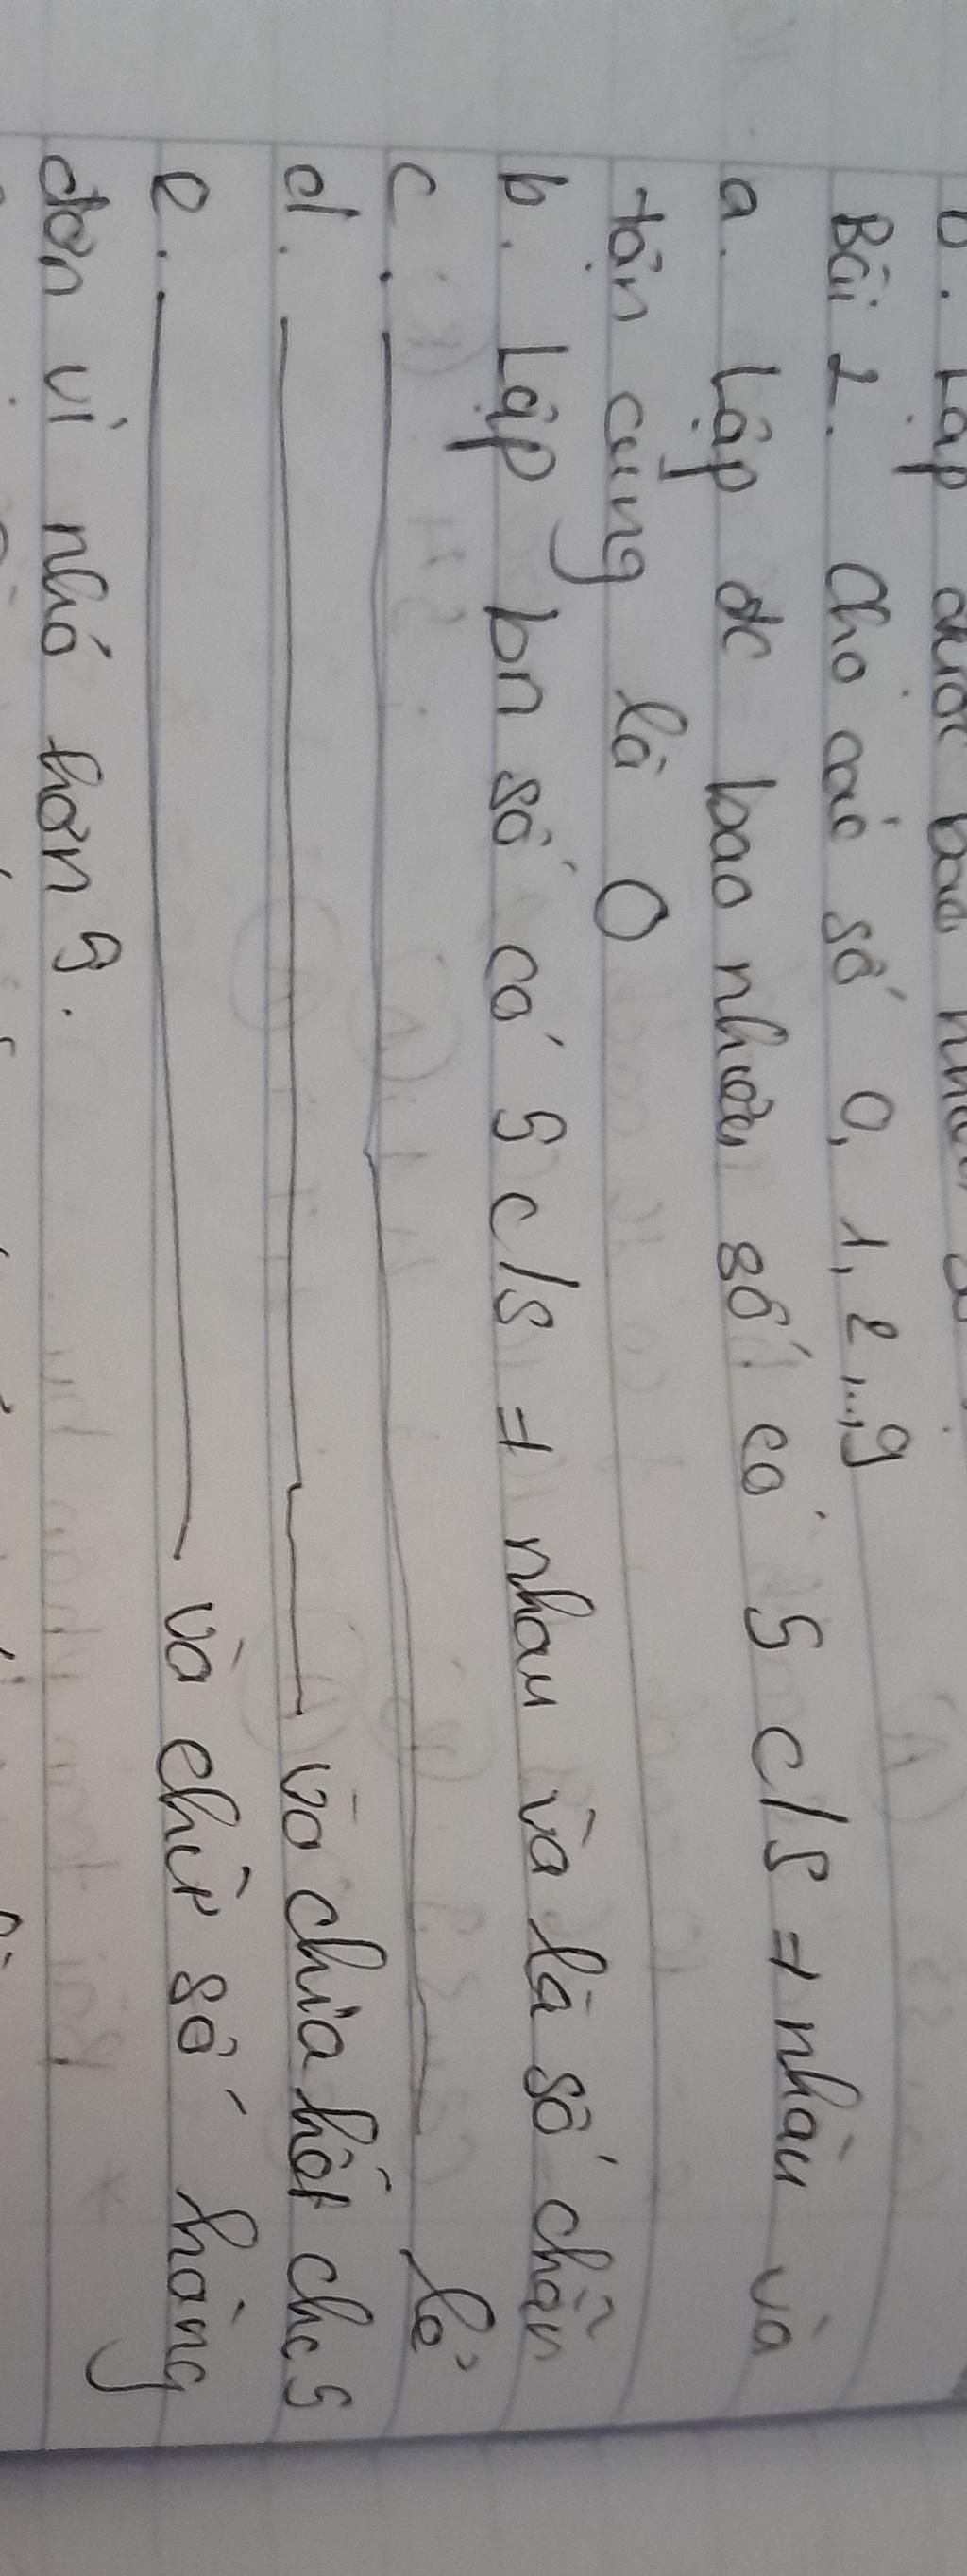 b. Lập được bao
Bài 2. Cho các số 0, 1, 2,..., 9
a. Lập đc bao nhiêu số có 5 c/s ≠ nhau và
tận cùng là 0
b. Lập bn số có 5 c/s ≠ nhau và là số chẵn
c. ——— lẻ
d. ——— và chia hết cho 5
e. ——— và chữ số hàng
đơn vị nhỏ hơn 5.